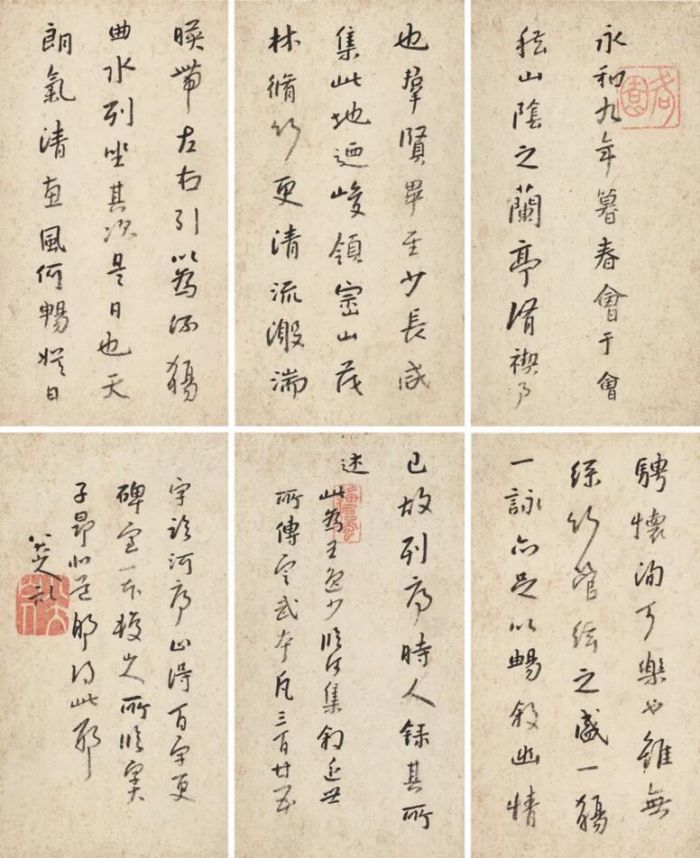 永和九年暮春會于會
稽山陰之蘭亭脩禊事
也羣賢畢至少長咸
集此地迺峻領崇山茂
林脩竹更清流激湍
暎帶左右引以爲流觴
曲水列坐其次是日也天
朗氣清惠風和暢娛目
騁懷洵可樂也雖無
絲竹管絃之盛一觴
一詠亦足以暢敘幽情
已故列序時人錄其所
述
此爲王逸少臨河集敘近世
所傳定武本凡三百廿五
字 河序止得百字更
碑 一本 所臨
子昂 此耶
八大山人